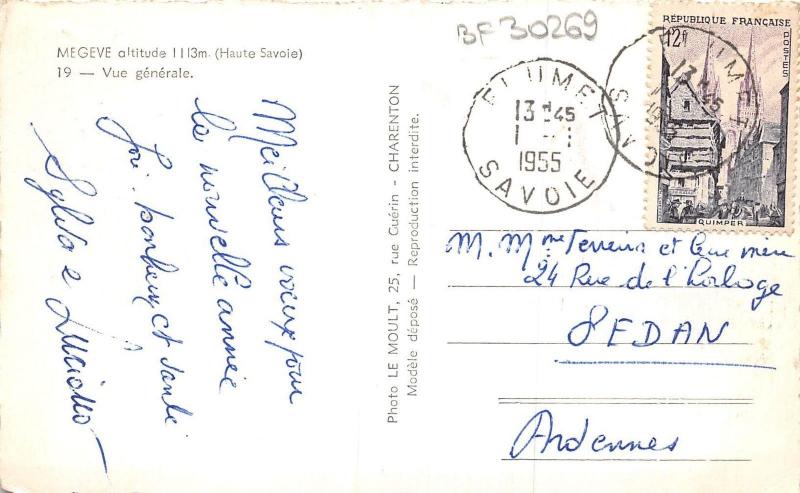 BF 30269
MEGEVE altitude 1113m. (Haute Savoie)
19 — Vue générale.
Meilleurs voeux pour
la nouvelle année
Joie. bonheur, et santé
Sylva e Luciano
Photo LE MOULT, 25, rue Guérin - CHARENTON
Modèle déposé — Reproduction interdite.
FLUMET
13 H 45
1 - 1
1955
SAVOIE
FLUMET
13 H 45
1955
SAVOIE
RÉPUBLIQUE FRANÇAISE
12f
POSTES
QUIMPER
M. Mme et
24 Rue de l'horloge
SEDAN
Ardennes